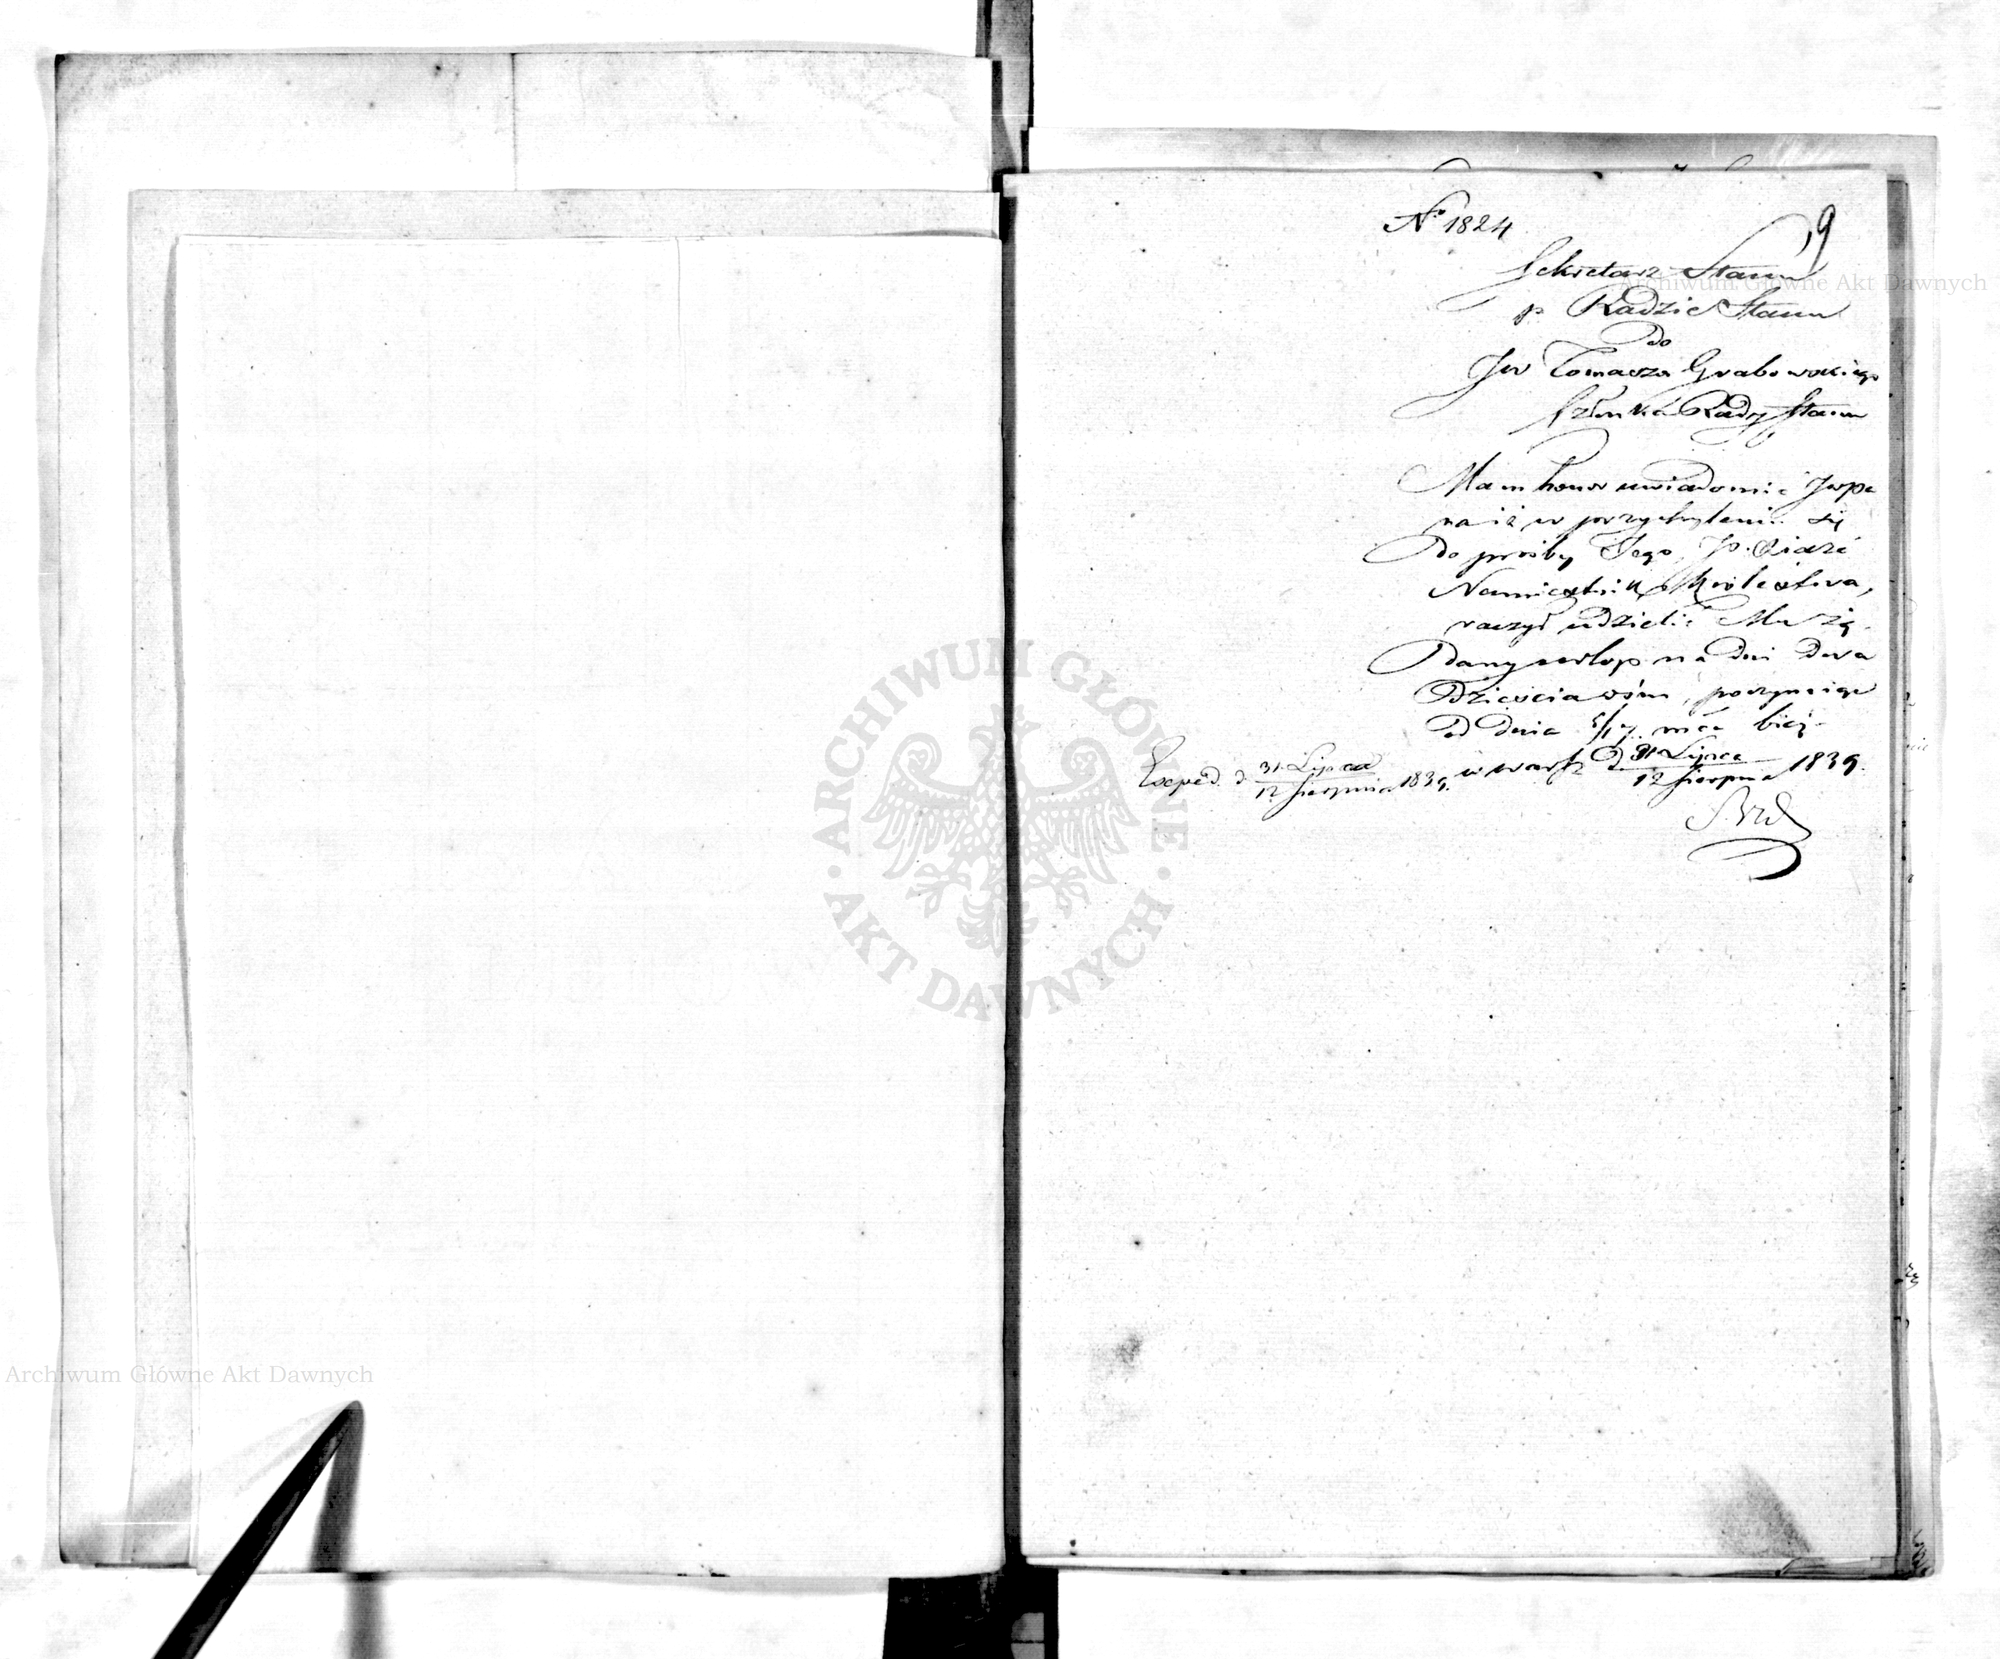 9
No 1824
Sekretarz Stanu
p. Radzie Stanu
do
JW Tomasza Grabowskiego
Członka Rady Stanu
Mam honor uwiadomić JWPa
na iż w przychyleniu się
do prośby Jego, JO. Xiąże
Namiestnik Królestwa,
raczył udzielić Mu żą-
dany urlop na dni dwa
dzieścia ośm, poczynając
od dnia mca bież.
w Warsz d 31 Lipca
12 Sierpnia 1839.
Exped. d. 31 Lipca
12 Sierpnia 1839.
ARCHIWUM GŁÓWNE
AKT DAWNYCH
Archiwum Główne Akt Dawnych
Archiwum Główne Akt Dawnych